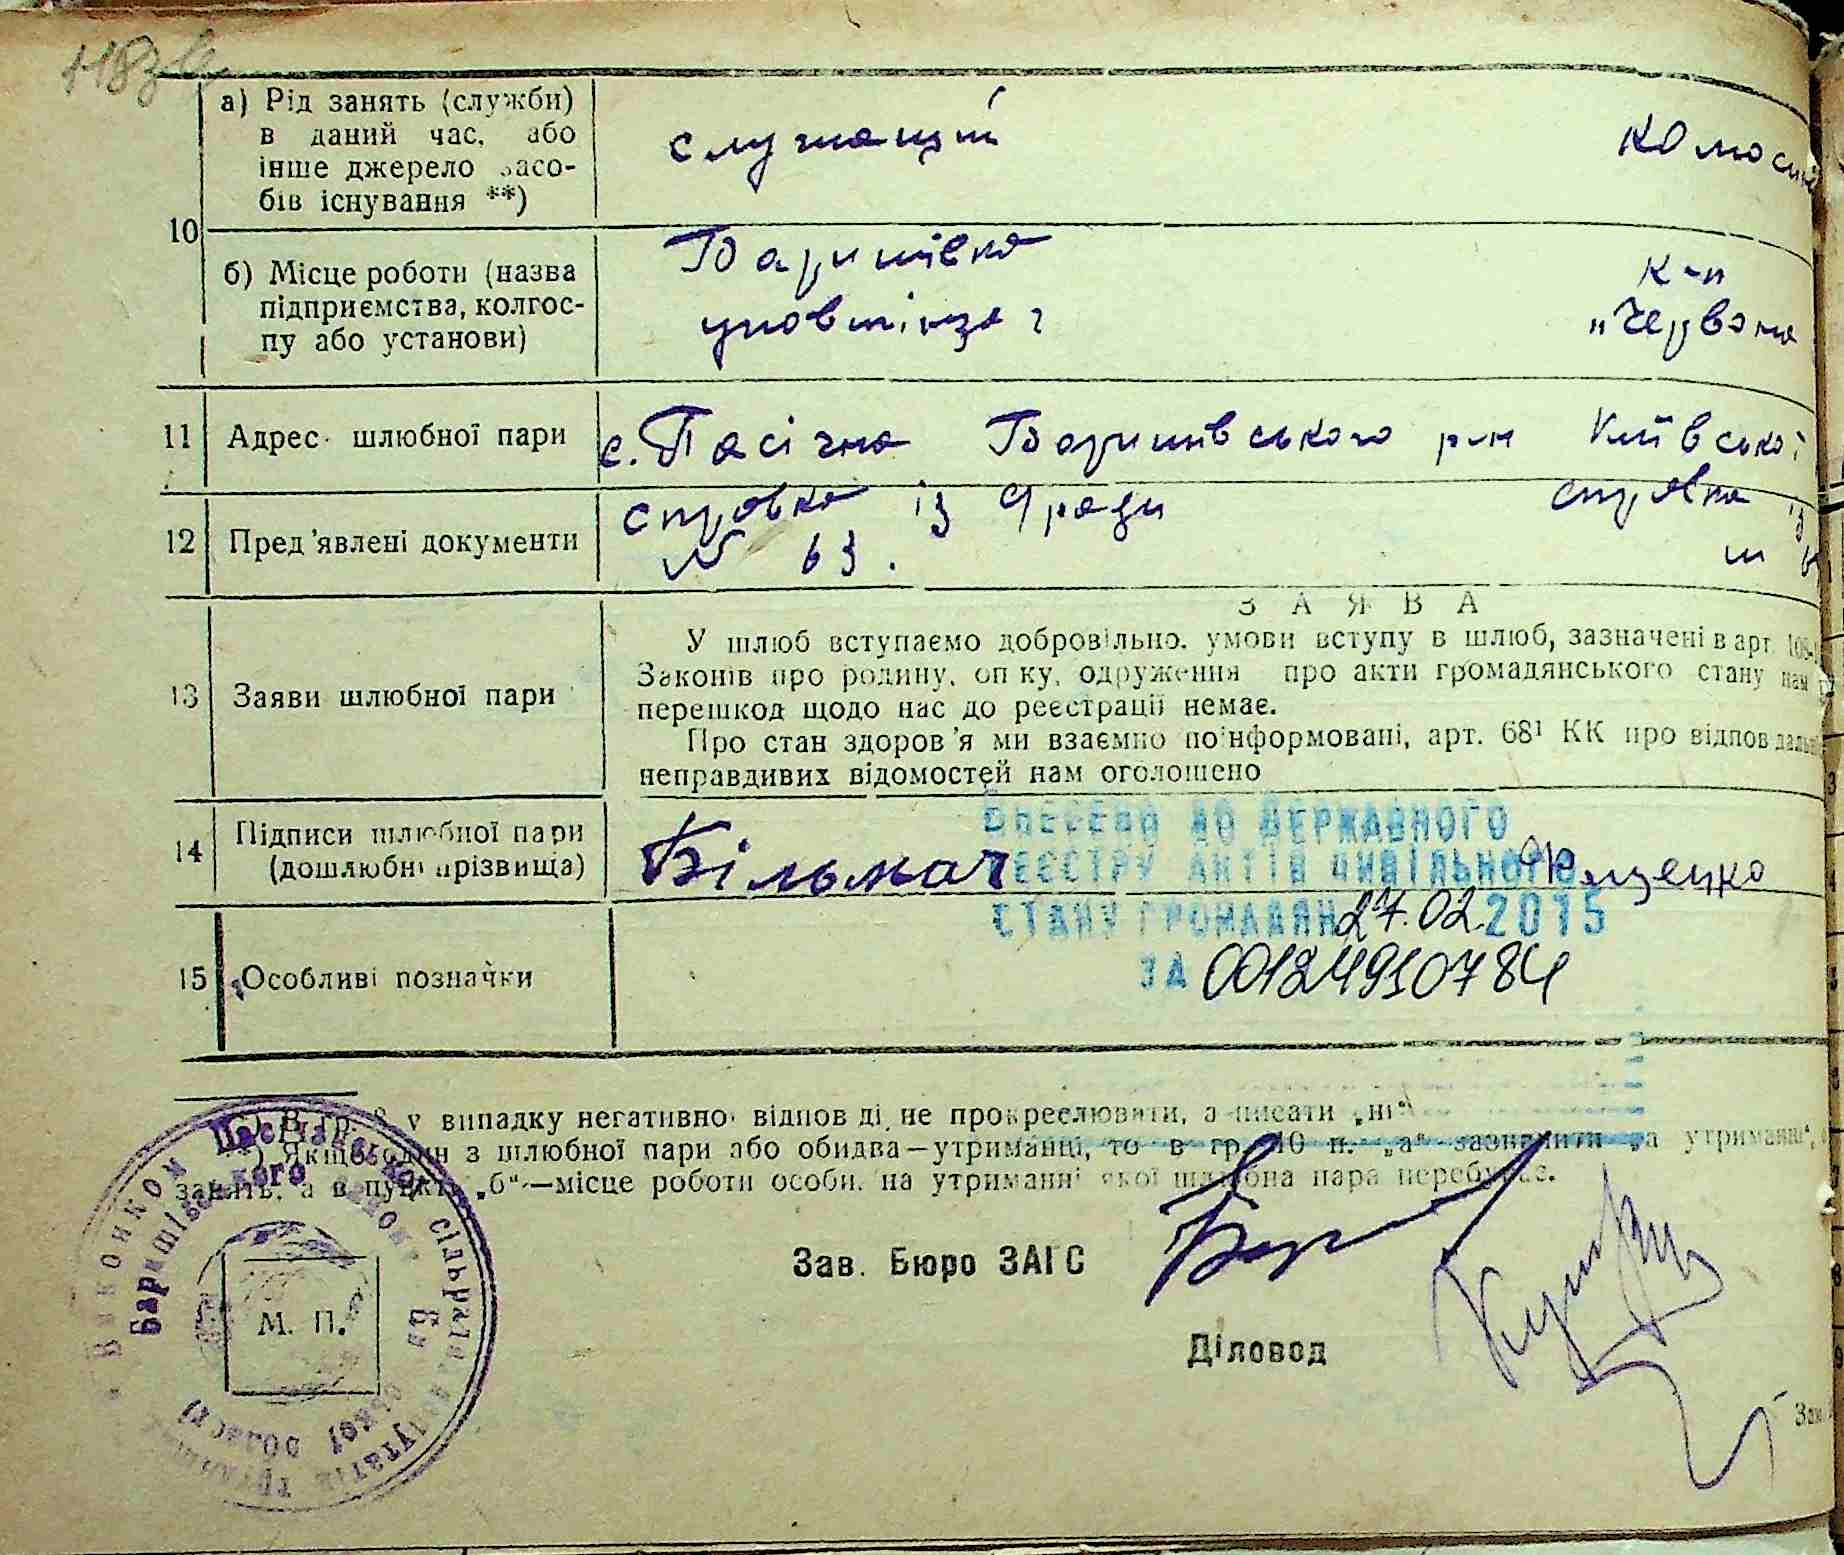 а) Рід занять (служби)
в даний час, або
інше джерело засо-
бів існування **)
служащий
10
б) Місце роботи (назва
підприємства, колгос-
пу або установи)
Баришівка
к-п
"Червона
11 Адрес шлюбної пари
с. Пасічна Баришівського р-н Київської
12 Пред'явлені документи
справка із с/ради справка із
№ 63.
ЗАЯВА
13 Заяви шлюбної пари
У шлюб вступаємо добровільно. умови вступу в шлюб, зазначені в арт. 109-
Законів про родину, опіку, одруження про акти громадянського стану нам
перешкод щодо нас до реєстрації немає.
Про стан здоров'я ми взаємно поінформовані, арт. 68¹ КК про відповідаль
неправдивих відомостей нам оголошено
14 Підписи шлюбної пари
(дошлюбні прізвища)
Більмач Ющенко
Внесено до Державного
реєстру актів цивільного
стану громадян 27.02.2015
за 00124910784
15 Особливі позначки
*) В гр. 8 у випадку негативної відповіді не прокреслювати, а писати „ні"
**) Якщо один з шлюбної пари або обидва—утриманці, то в гр. 10 п. „а" зазначити „на утриманні",
занять, а в пункті „б"—місце роботи особи, на утриманні якої шлюбна пара перебуває.
Зав. Бюро ЗАГС
М. П.
Діловод
Зам